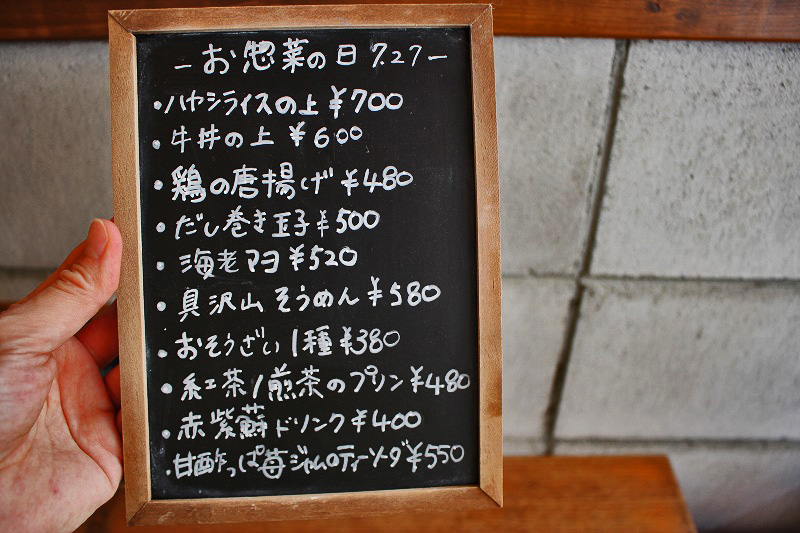 -お惣菜の日 7.27-
・ハヤシライスの上 ¥700
・牛丼の上 ¥600
・鶏の唐揚げ ¥480
・だし巻き玉子 ¥500
・海老マヨ ¥520
・具沢山そうめん ¥580
・おそうざい1種 ¥380
・紅茶/煎茶のプリン ¥480
・赤紫蘇ドリンク ¥400
・甘酢っぱ苺ジャムのティーソーダ ¥550